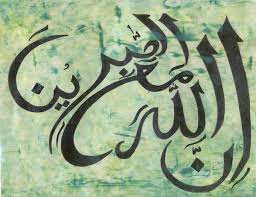 إِنَّ اللَّهَ مَعَ الصَّبِرِينَ